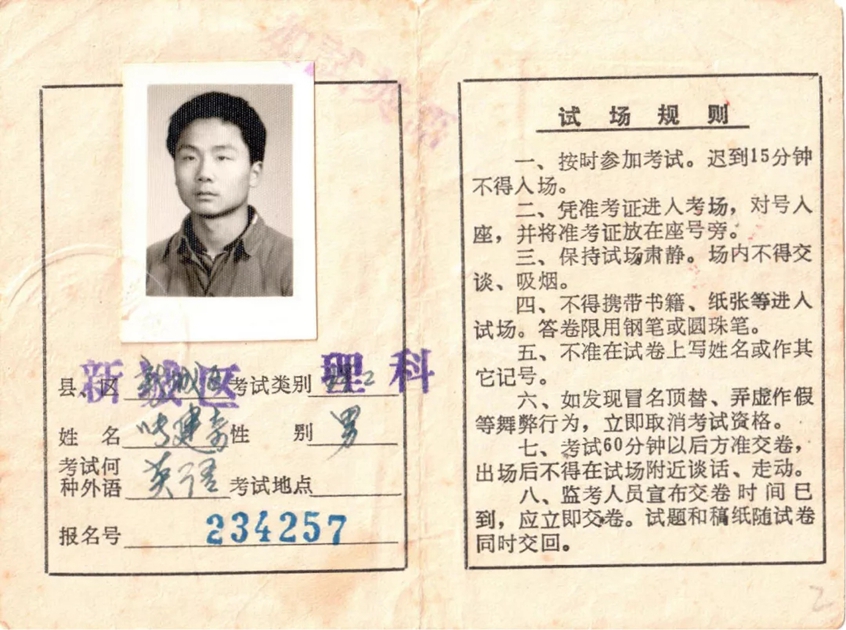 新城区 理科
县、区 新城区 考试类别 理工
姓 名 建 性 别 男
考试何
种外语 英语 考试地点
报名号 234257
试场规则
一、按时参加考试。迟到15分钟
不得入场。
二、凭准考证进入考场，对号入
座，并将准考证放在座号旁。
三、保持试场肃静。场内不得交
谈、吸烟。
四、不得携带书籍、纸张等进入
试场。答卷限用钢笔或圆珠笔。
五、不准在试卷上写姓名或作其
它记号。
六、如发现冒名顶替、弄虚作假
等舞弊行为，立即取消考试资格。
七、考试60分钟以后方准交卷，
出场后不得在试场附近谈话、走动。
八、监考人员宣布交卷时间已
到，应立即交卷。试题和稿纸随试卷
同时交回。
2